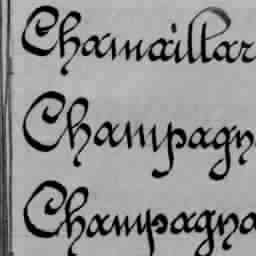 Chamaillar
Champagn
Champagna